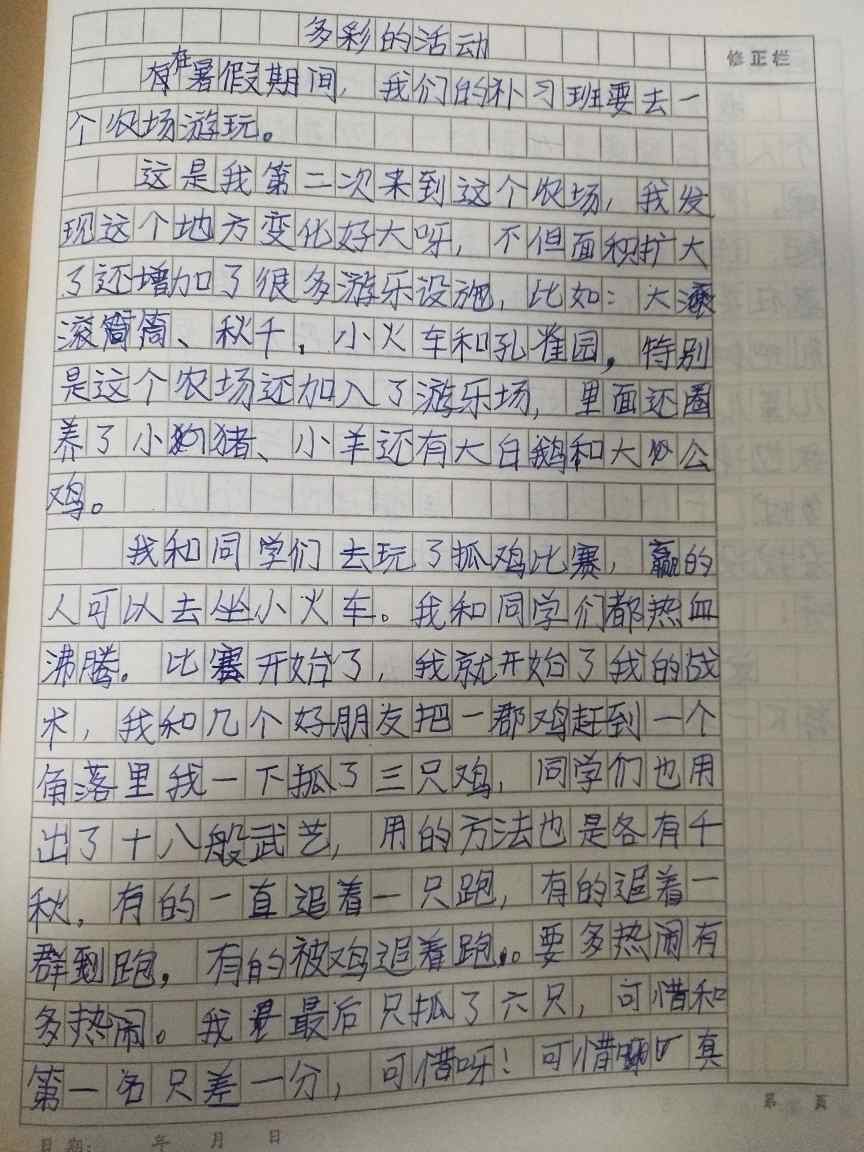 多彩的活动
修正栏
在暑假期间，我们的补习班要去一
个农场游玩。
这是我第二次来到这个农场，我发
现这个地方变化好大呀，不但面积扩大
了还增加了很多游乐设施，比如：大滚
滚筒、秋千，小火车和孔雀园，特别
是这个农场还加入了游乐场，里面还圈
养了小狗猪、小羊还有大白鹅和大公
鸡。
我和同学们去玩了抓鸡比赛，赢的
人可以去坐小火车。我和同学们都热血
沸腾。比赛开始了，我就开始了我的战
术，我和几个好朋友把一群鸡赶到一个
角落里我一下抓了三只鸡，同学们也用
出了十八般武艺，用的方法也是各有千
秋，有的一直追着一只跑，有的追着一
群跑，有的被鸡追着跑。要多热闹有
多热闹。我最后只抓了六只，可惜和
第一名只差一分，可惜呀！可惜真
第 页
日期： 年 月 日